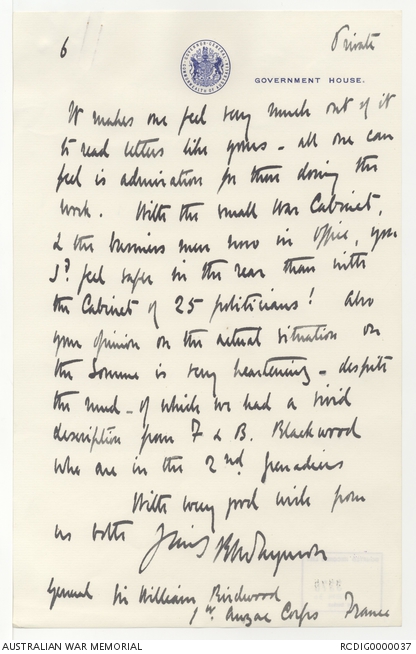 6
Private
GOVERNOR-GENERAL
COMMONWEALTH OF AUSTRALIA
GOVERNMENT HOUSE.
It makes one feel very much out of it
to read letters like yours - all one can
feel is admiration for those doing the
work. With the small War Cabinet,
& the business men now in office, you
sd. feel safer in the rear than with
the Cabinet of 25 politicians! Also
your opinion on the actual situation on
the Somme is very heartening - despite
the mud - of which we had a vivid
description from F & B. Blackwood
who are in the 2nd Grenadiers
With every good wish from
us both
General Sir William Birdwood
1st Anzac Corps France
AUSTRALIAN WAR MEMORIAL
RCDIG0000037